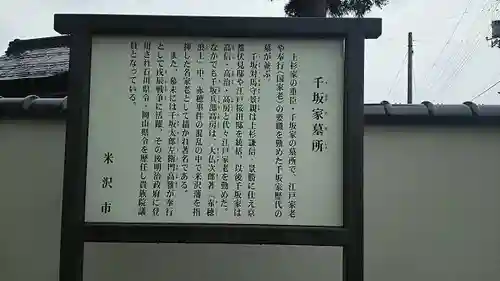 千坂家墓所
上杉家の重臣・千坂家の墓所で、江戸家老
や奉行(国家老)の要職を勤めた千坂家歴代の
墓が並ぶ。
千坂対馬守景親は上杉謙信・景勝に仕え京
都伏見邸や江戸桜田邸を統括、以後千坂家は
高信・高治・高房と代々江戸家老を勤めた。
なかでも千坂兵部高房は、大仏次郎著『赤穂
浪士』中、赤穂事件の混乱の中で米沢藩を指
揮した名家老として描かれ著名である。
また、幕末には千坂太郎左衛門高雅が奉行
として戊辰戦争に活躍、その後明治政府に登
用され石川県令・岡山県令を歴任し貴族院議
員となっている。
米沢市